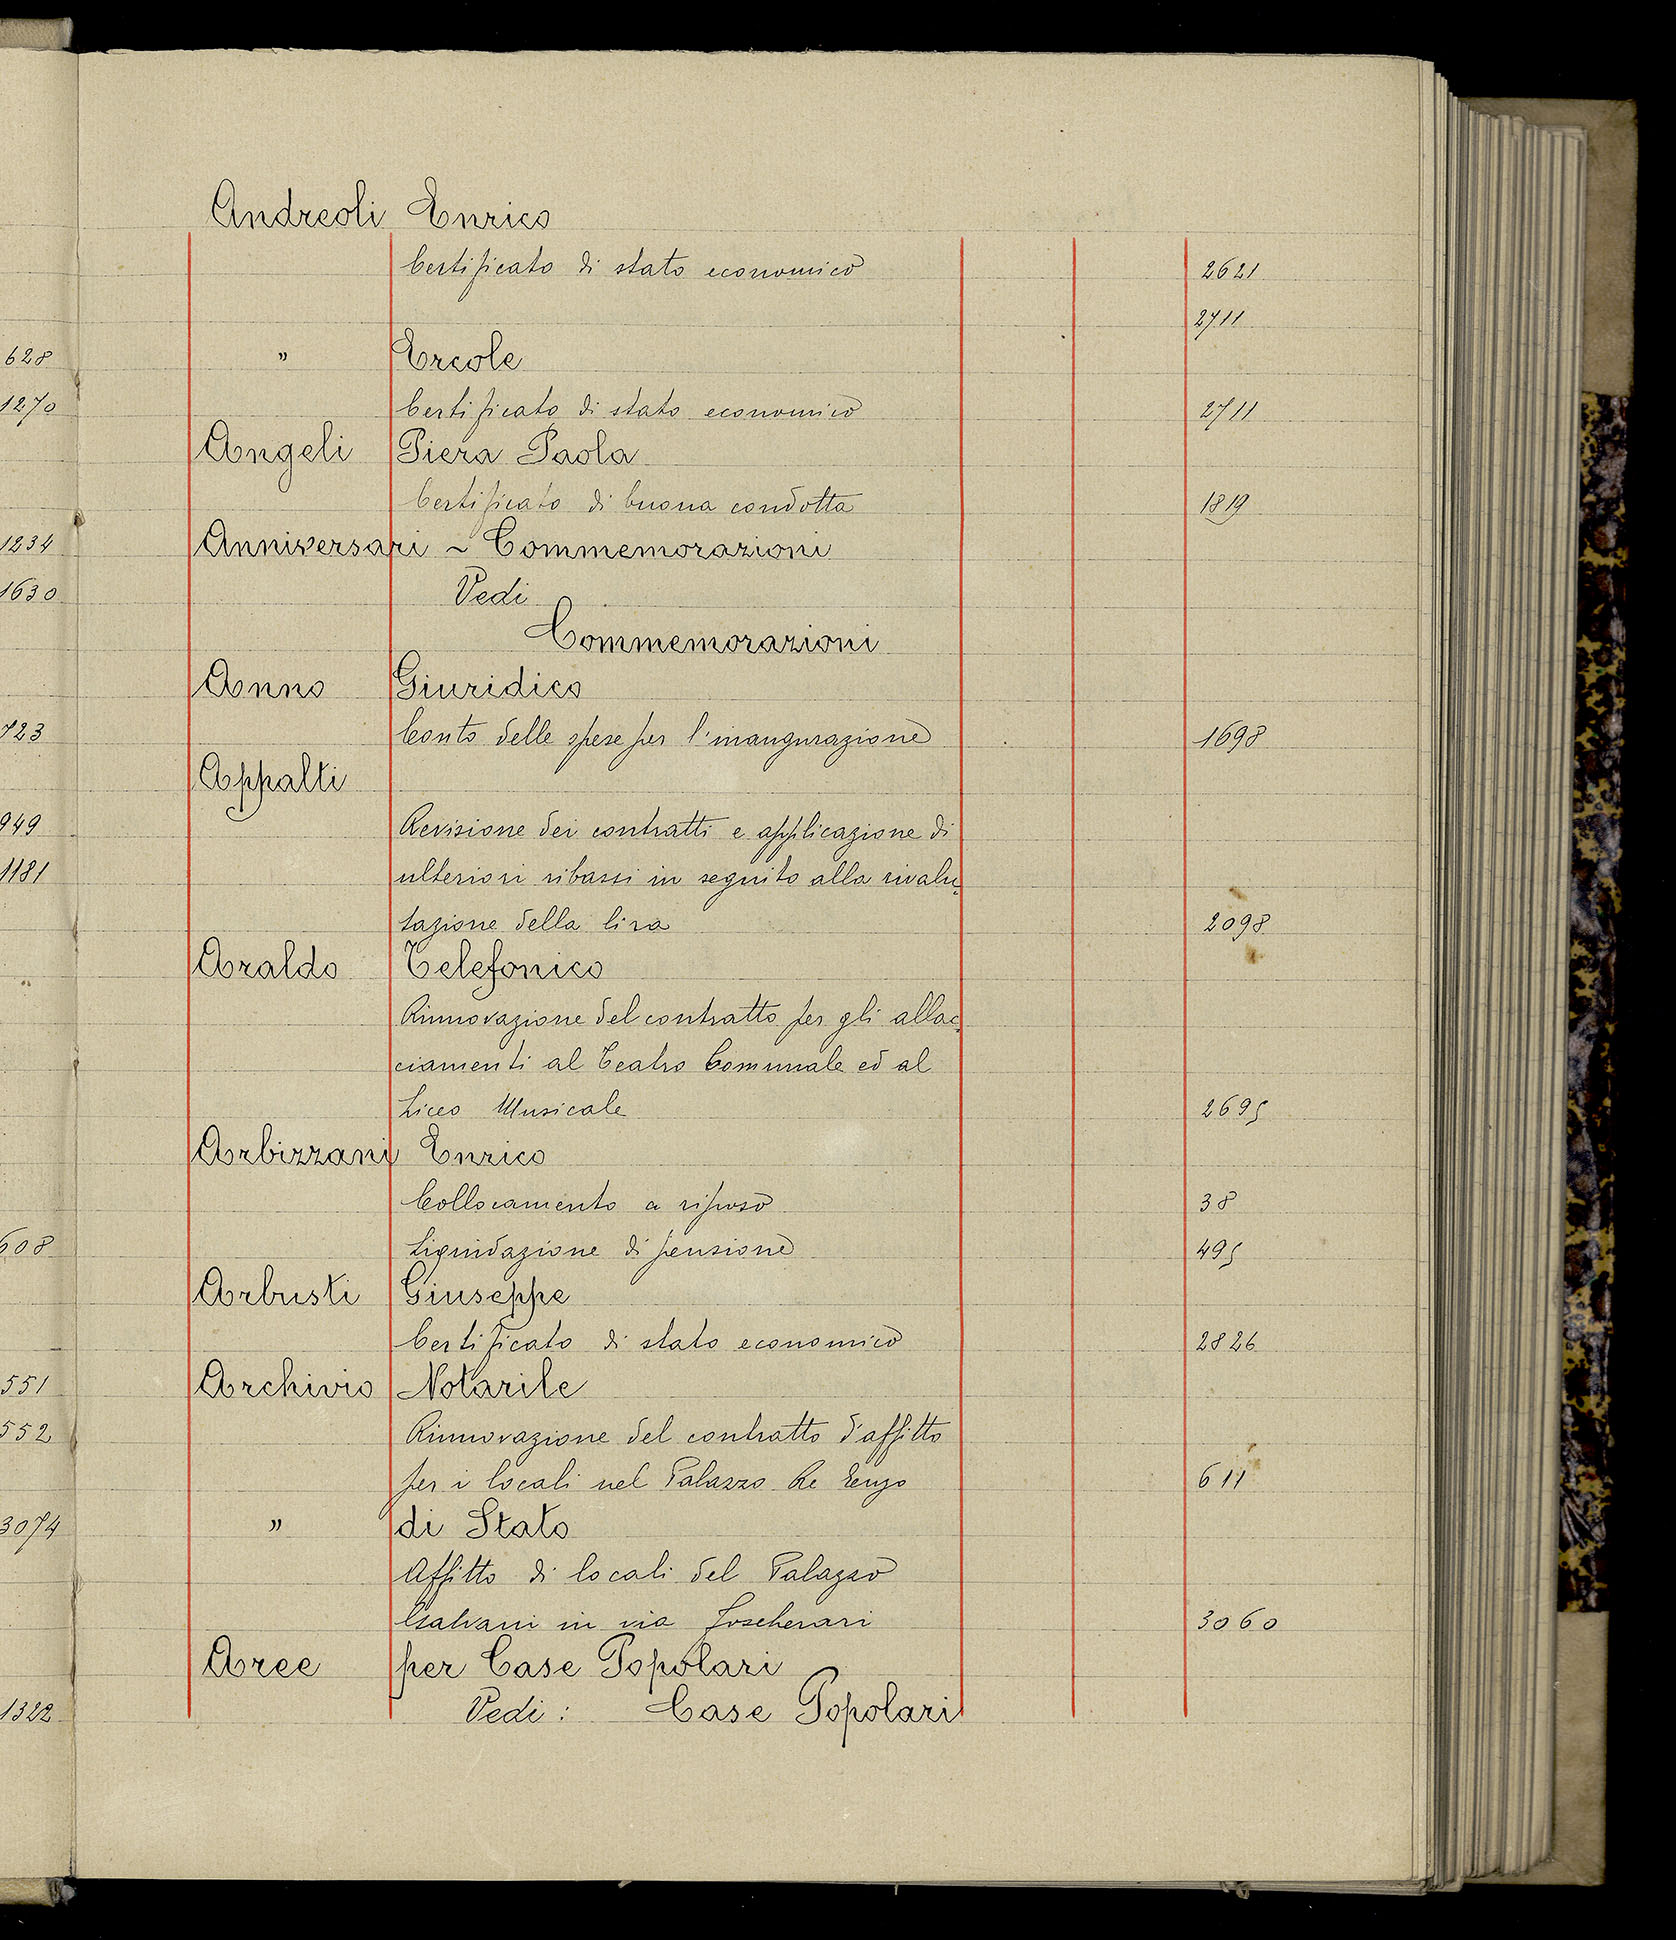 Andreoli Enrico
Certificato di stato economico 2621
2711
" Ercole
Certificato di stato economico 2711
Angeli Piera Paola
Certificato di buona condotta 1819
Anniversari ~ Commemorazioni
Vedi
Commemorazioni
Anno Giuridico
Conto delle spese per l'inaugurazione 1698
Appalti
Revisione dei contratti e applicazione di
ulteriori ribassi in seguito alla rivalu
tazione della lira 2098
Araldo Telefonico
Rinnovazione del contratto per gli allac
ciamenti al Teatro Comunale ed al
Liceo Musicale 2695
Arbizzani Enrico
Collocamento a riposo 38
Liquidazione di pensione 495
Arbusti Giuseppe
Certificato di stato economico 2826
Archivio Notarile
Rinnovazione del contratto d'affitto
per i locali nel Palazzo Re Enzo 611
" di Stato
Affitto di locali del Palazzo
Galvani in via Foscherari 3060
Aree per Case Popolari
Vedi: Case Popolari
628
1270
1234
1630
723
949
1181
608
551
552
3074
1322